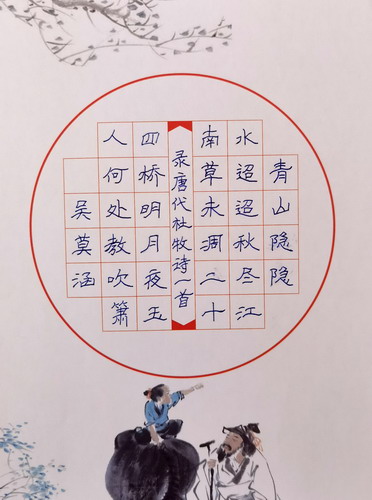 青山隐隐
水迢迢秋尽江
南草未凋二十
录唐代杜牧诗一首
四桥明月夜玉
人何处教吹箫
吴莫涵